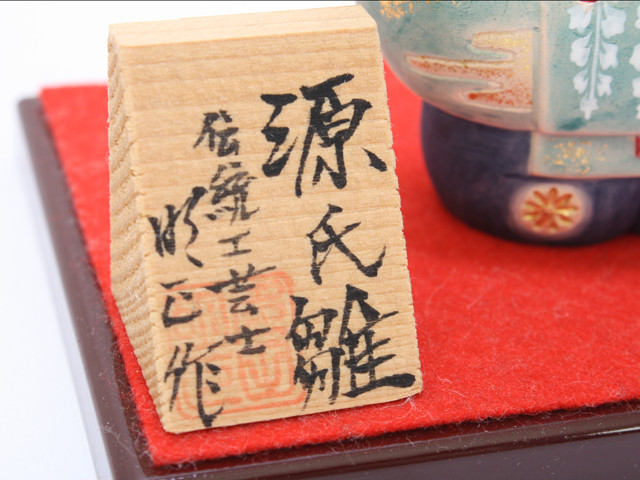 源氏雛
伝統工芸士
明正作